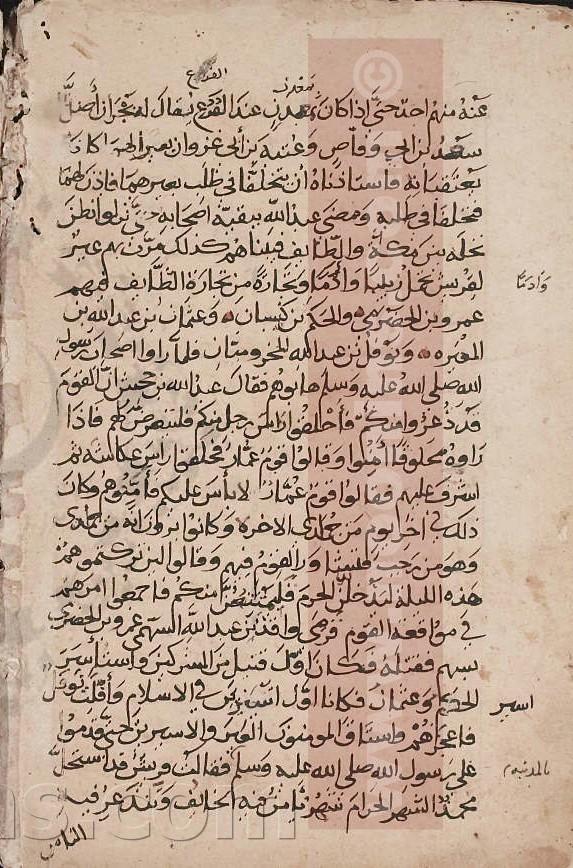 الفرع
معدن
عنه منهم احد حتى اذا كان بمعدن عند الفرع يقال له بحران أضل
سعد بن ابي وقاص وعتبة بن أبي غزوان بعير لهما كانا
يعتقبانه فاستاذناه أن يتخلفا في طلب بعيرهما فاذن لهما
فتخلفا في طلبه ومضى عبد الله ببقية اصحابه حتى نزلوا نطن
نخله بين مكة والطايف فبيناهم كذلك مرت بهم عير
لقريش تحمل زبيبا وأدما وتجارة من تجارة الطايف فيهم
وأدما
عمرو بن الحضرمي والحكم بن كيسان وعثمان بن عبد الله بن
المغيره ونوفل بن عبد الله المخزوميان فلما راوا اصحاب رسول
الله صلى الله عليه وسلم هابوهم فقال عبد الله بن جحش ان القوم
قد ذعروا منكم فأحلقوا راس رجل منكم فليتعرض لهم فاذا
راوه محلوقا أمنوا وقالوا قوم عمار فحلقوا راس عكاشه ثم
اشرف عليهم فقالوا قوم عمار لا بأس عليكم فأمنوهم وكان
ذلك في اخر يوم من جمادى الاخره وكانوا يرون انه من جمادى
وهو من رجب فتشاور القوم فيهم وقالوا لين تركتموهم
هذه الليلة ليدخلن الحرم فليمتنعن منكم فاجمعوا امرهم
في مواقعة القوم فرمى واقد بن عبد الله السهمي عمرو بن الحضرمي
بسهم فقتله فكان اول قتيل من المشركين واستأسر
الحكم وعثمان فكانا اول اسيرين في الاسلام وأفلت نوفل
اسير
فاعجزهم واستاق المومنون العير والاسيرين حتى قدموا
على رسول الله صلى الله عليه وسلم فقالت قريش قد استحل
بالمدينه
محمد الشهر الحرام شهر يأمن فيه الخائف